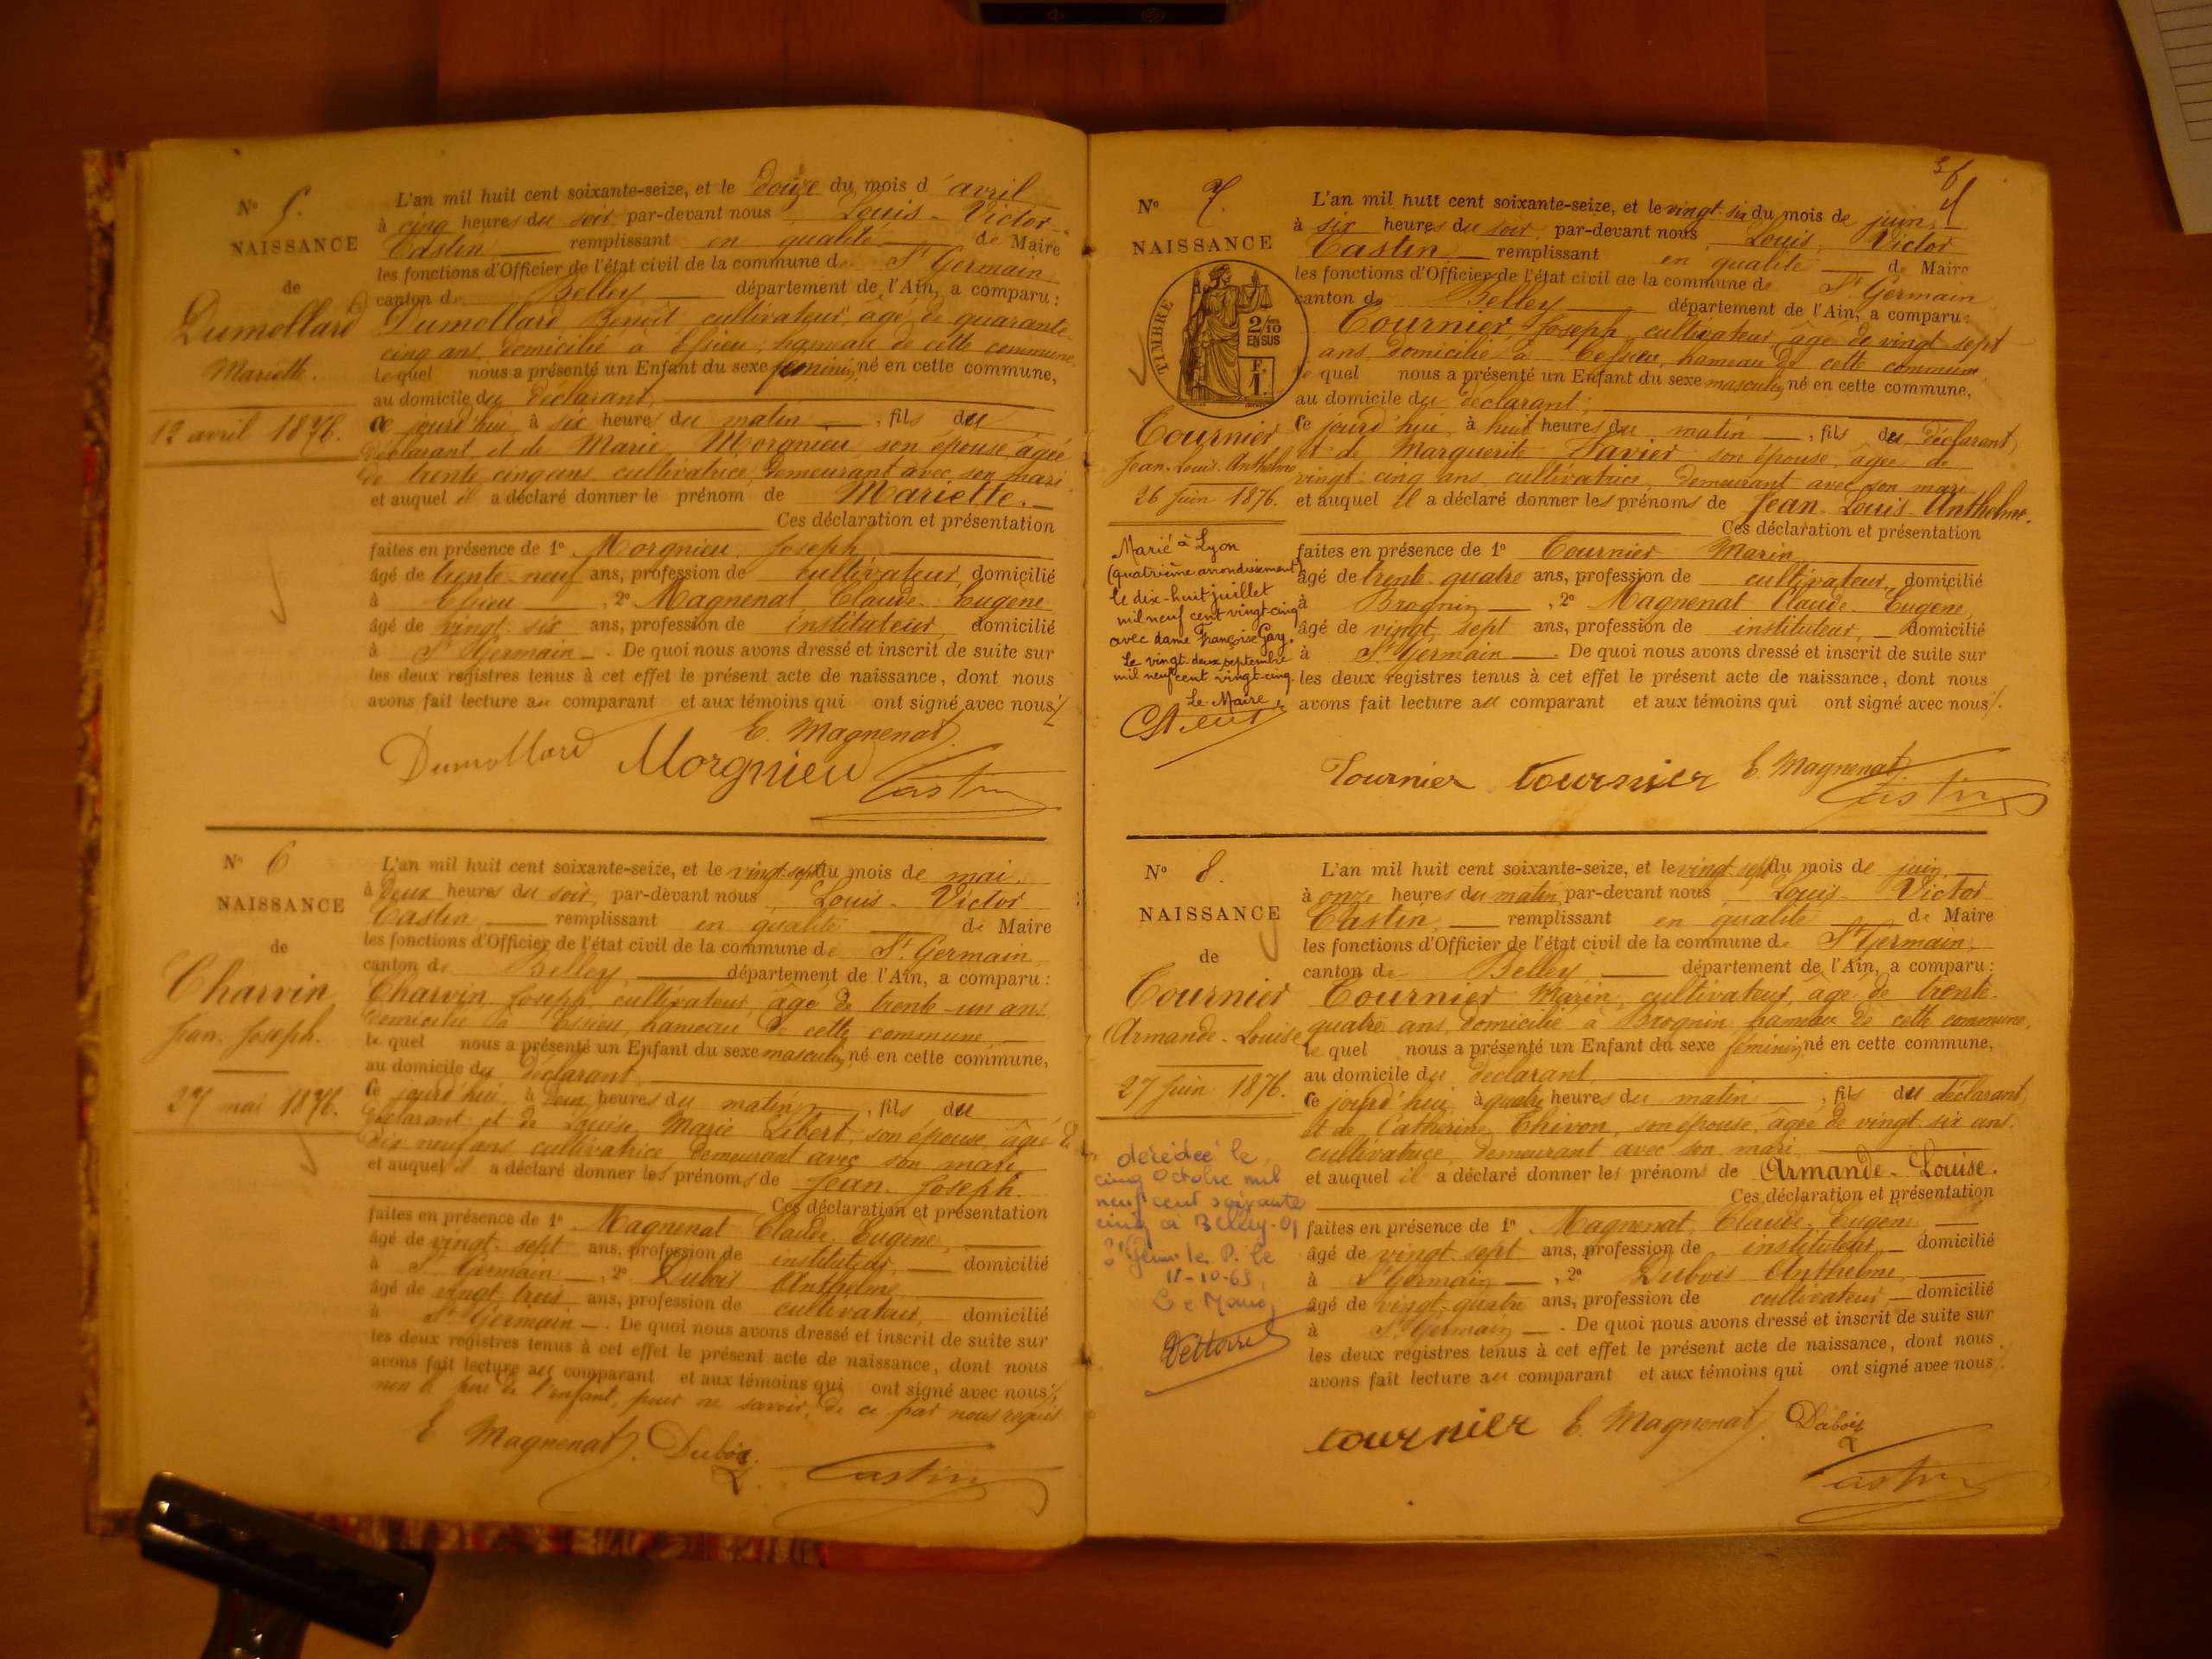 N° 5.
NAISSANCE
de
Dumollard
Mariette.
12 avril 1876.
L'an mil huit cent soixante-seize, et le douze du mois d'avril
à cinq heures du soir par-devant nous Louis-Victor
Castin remplissant en qualité de Maire
les fonctions d'Officier de l'état civil de la commune de St Germain
canton de Belley département de l'Ain, a comparu :
Dumollard, Benoît, cultivateur, âgé de quarante
cinq ans, domicilié à hameau de cette commune,
lequel nous a présenté un Enfant du sexe féminin, né en cette commune,
au domicile du déclarant,
Ce jourd'hui, à six heures du matin, fils du
déclarant et de Marie Morgnieu, son épouse, âgée
de trente cinq ans, cultivatrice, demeurant avec son mari
et auquel il a déclaré donner le prénom de Mariette.
Ces déclaration et présentation
faites en présence de 1° Morgnieu, Joseph,
âgé de trente-neuf ans, profession de cultivateur, domicilié
à , 2° Magnenat Claude-Eugène
âgé de vingt-six ans, profession de instituteur, domicilié
à St Germain. De quoi nous avons dressé et inscrit de suite sur
les deux registres tenus à cet effet le présent acte de naissance, dont nous
avons fait lecture au comparant et aux témoins qui ont signé avec nous
E. Magnenat
Dumollard Morgnieu Castin
N° 6
NAISSANCE
de
Charvin
Jean-Joseph.
27 mai 1876.
L'an mil huit cent soixante-seize, et le vingt-sept du mois de mai,
à deux heures du soir, par-devant nous, Louis-Victor
Castin, remplissant en qualité de Maire
les fonctions d'Officier de l'état civil de la commune de St Germain
canton de Belley, département de l'Ain, a comparu :
Charvin Joseph, cultivateur, âgé de trente-un ans
domicilié à hameau de cette commune,
lequel nous a présenté un Enfant du sexe masculin, né en cette commune,
au domicile du déclarant
Ce jourd'hui, à deux heures du matin, fils du
déclarant et de Louise Marie Libert, son épouse, âgée de
dix neuf ans, cultivatrice, demeurant avec son mari,
et auquel il a déclaré donner les prénoms de Jean-Joseph.
Ces déclaration et présentation
faites en présence de 1° Magnenat Claude, Eugène,
âgé de vingt-sept ans, profession de instituteur, domicilié
à St Germain, 2° Dubois Anthelme,
âgé de vingt-trois ans, profession de cultivateur, domicilié
à St Germain. De quoi nous avons dressé et inscrit de suite sur
les deux registres tenus à cet effet le présent acte de naissance, dont nous
avons fait lecture au comparant et aux témoins qui ont signé avec nous,
non le père de l'enfant, pour ne savoir, de ce par nous requis
E. Magnenat. Dubois. Castin
36
N° 7.
NAISSANCE
TIMBRE
2/10
EN SUS
F.
1.
Tournier
Jean-Louis-Anthelme
26 juin 1876.
Marié à Lyon
(quatrième arrondissement)
le dix-huit juillet
mil neuf cent vingt-cinq
avec dame Françoise Gay.
Le vingt-deux septembre
mil neuf cent vingt-cinq.
Le Maire
L'an mil huit cent soixante-seize, et le vingt-six du mois de juin,
à six heures du soir, par-devant nous Louis, Victor
Castin, remplissant en qualité de Maire
les fonctions d'Officier de l'état civil de la commune de St Germain
canton de Belley département de l'Ain, a comparu :
Tournier, Joseph, cultivateur, âgé de vingt sept
ans, domicilié à hameau de cette commune,
lequel nous a présenté un Enfant du sexe masculin, né en cette commune,
au domicile du déclarant,
Ce jourd'hui, à huit heures du matin, fils du déclarant
et de Marguerite Favier son épouse, âgée de
vingt-cinq ans, cultivatrice, demeurant avec son mari
et auquel il a déclaré donner les prénoms de Jean-Louis-Anthelme.
Ces déclaration et présentation
faites en présence de 1° Tournier Marin,
âgé de trente-quatre ans, profession de cultivateur, domicilié
à Brognin, 2° Magnenat Claude-Eugène,
âgé de vingt sept ans, profession de instituteur, domicilié
à St Germain. De quoi nous avons dressé et inscrit de suite sur
les deux registres tenus à cet effet le présent acte de naissance, dont nous
avons fait lecture au comparant et aux témoins qui ont signé avec nous.
Tournier tournier E. Magnenat Castin
N° 8.
NAISSANCE
de
Tournier
Armande-Louise
27 juin 1876.
décédée le
cinq octobre mil
neuf cent soixante
cinq à Belley-01
St Germ. les P. le
11-10-65
Le Maire
L'an mil huit cent soixante-seize, et le vingt-sept du mois de juin
à onze heures du matin par-devant nous, Louis-Victor
Castin, remplissant en qualité de Maire
les fonctions d'Officier de l'état civil de la commune de St Germain
canton de Belley département de l'Ain, a comparu :
Tournier Marin, cultivateur, âgé de trente-
quatre ans, domicilié à Brognin hameau de cette commune,
lequel nous a présenté un Enfant du sexe féminin, né en cette commune,
au domicile du déclarant
Ce jourd'hui, à quatre heures du matin, fils du déclarant
et de Catherine Thivon, son épouse, âgée de vingt-six ans.
cultivatrice, demeurant avec son mari
et auquel il a déclaré donner les prénoms de Armande-Louise.
Ces déclaration et présentation
faites en présence de 1° Magnenat, Claude, Eugène
âgé de vingt-sept ans, profession de instituteur, domicilié
à St Germain, 2° Dubois Anthelme,
âgé de vingt-quatre ans, profession de cultivateur domicilié
à St Germain. De quoi nous avons dressé et inscrit de suite sur
les deux registres tenus à cet effet le présent acte de naissance, dont nous
avons fait lecture au comparant et aux témoins qui ont signé avec nous
tournier E. Magnenat. Dubois
Castin